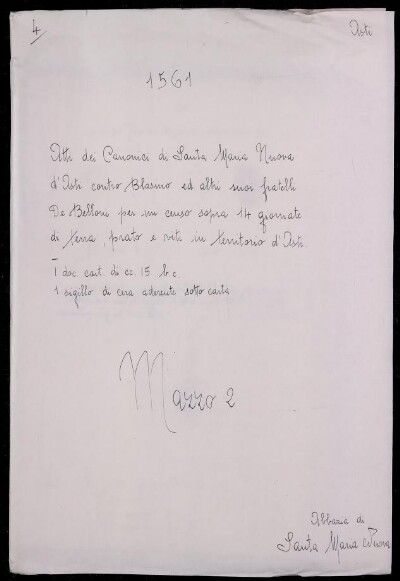 4
Asti
1561
Atti dei Canonici di Santa Maria Nuova
d'Asti contro Blasino ed altri suoi fratelli
De Belloni per un censo sopra 14 giornate
di terra, prato e viti in territorio d'Asti.
1 doc. cart. di cc. 15 b.c.
1 sigillo di cera aderente sotto carta
Mazzo 2
Abbazia di
Santa Maria Nuova